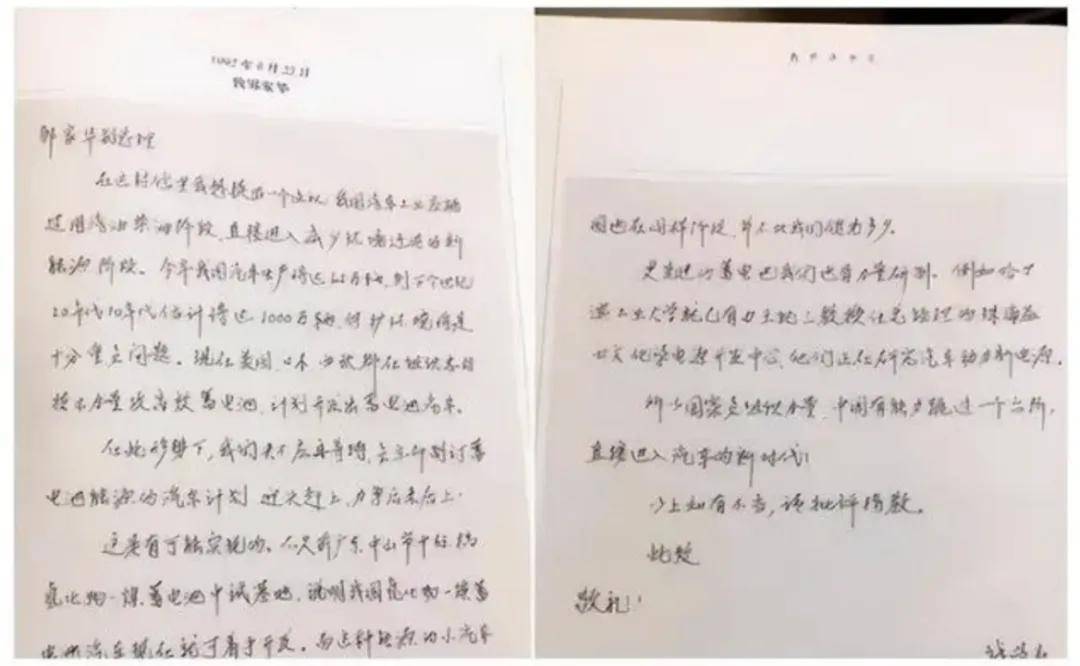 1992年8月22日
致邹家华
邹家华副总理
在这封信里我想提出一个建议,我国汽车工业应跳
过用汽油柴油阶段,直接进入减少环境污染的新
能源阶段。今年我国汽车生产将达 万辆,到下个世纪
20年代10年代估计将达1000万辆,保护环境将是
十分重要问题。现在美国、日本、西欧都在组织各自的
技术力量攻高效蓄电池,计划开发出蓄电池汽车。
在此形势下,我们决不应再等待,要立即制订蓄
电池能源的汽车计划,迎头赶上,力争后来居上。
这是有可能实现的。不久前广东中山市中标的
氢化物—镍蓄电池中试基地,说明我国氢化物—镍蓄
电池汽车现在就可着手开发。而这种能源的小汽车
国也在同样阶段,并不比我们领先多少。
更先进的蓄电池我们也有力量研制。例如哈尔
滨工业大学就已有 教授任总经理的珠海益
士文化学电源开发中心,他们正在研究汽车动力新电源。
所以国家要组织力量,中国有能力跳过一个台阶,
直接进入汽车的新时代!
以上如有不当,请批评指教。
此致
敬礼!
钱学森